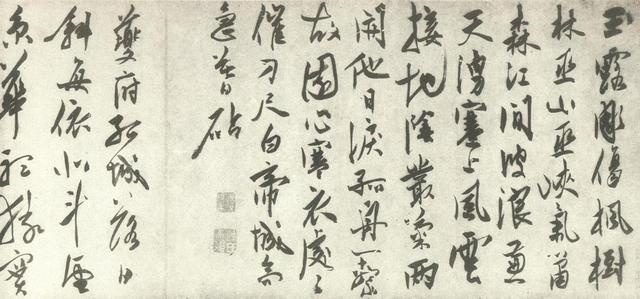 玉露彫傷楓樹
林巫山巫峽氣蕭
森江間波浪兼
天湧塞上風雲
接地陰叢菊兩
開他日淚孤舟一繫
故園心寒衣處々
催刀尺白帝城高
急暮砧
夔府孤城落日
斜每依北斗望
京華聽猿實